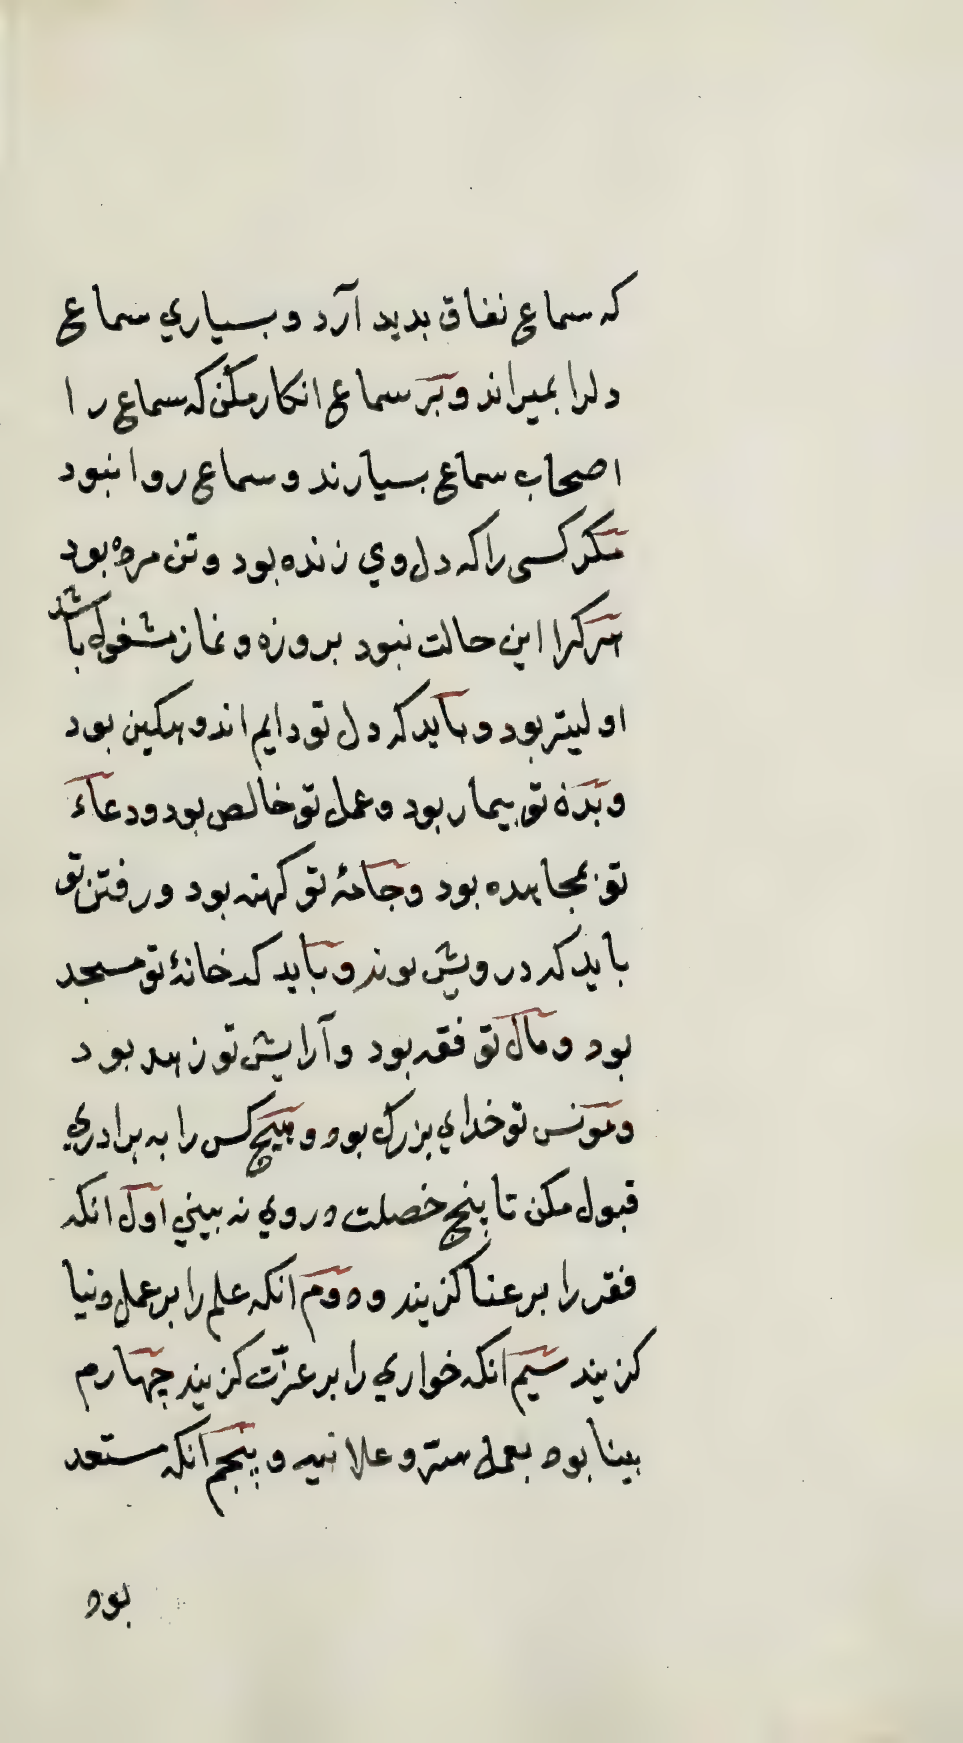 که سماع نفاق بدید آرد و بسیاري سماع
دلرا بمیراند و بر سماع انکار مکن که سماع را
اصحاب سماع بسیارند و سماع روا نبود
مکر کسی را که دل وي زنده بود و تن مرده بود
هرکرا این حالت نبود بروزه و نماز مشغول باشد
اولیتر بود و باید که دل تو دایم اندوهکین بود
و بدن تو بیمار بود و عمل تو خالص بود و دعاء
تو بمجاهده بود و جامۀ تو کهنه بود و رفتن تو
باید که درویش بوند و باید که خانۀ تو مسجد
بود و مال تو فقه بود و آرایش تو زهد بود
و مونس تو خداي بزرک بود و هیچ کس را به برادري
قبول مکن تا پنج خصلت در وي نه بیني اول انکه
فقر را بر عنا کزیند و دوم انکه علم را بر عمل دنیا
کزیند سیم انکه خواري را بر عزت کزیند چهارم
بینا بود بعمل ستر و علانیه و پنجم انکه مستعد
بود